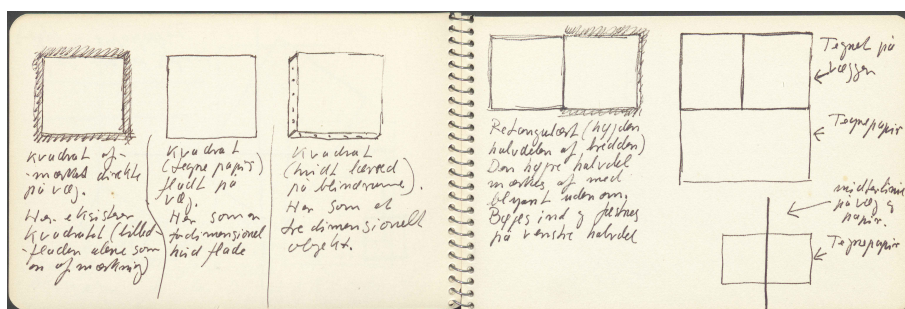 Kvadrat af-
mærket direkte
på væg.
Her eksisterer
Kvadratet (billed-
fladen alene som
en afmærkning)
Kvadrat
(tegnepapir)
fladt på
væg.
Her som en
todimensionel
hvid flade
Kvadrat
(hvidt lærred
på blindramme).
Her som et
tredimensionelt
objekt.
Retangulært (højden
halvdelen af bredden)
Den højre halvdel
mærkes af med
blyant udenom.
Bøjes ind og fæstnes
på venstre halvdel
Tegnet på
væggen
Tegnepapir
midterlinie
på væg og
papir.
Tegnepapir